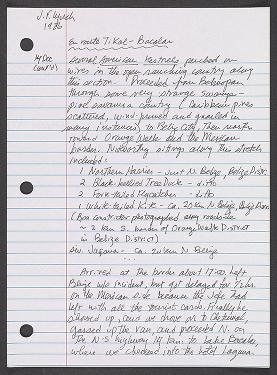 J.F. Lynch
1986
En route Tikal - Bacalar
14 Dec
(cont'd)
Several American Kestrels perched on
wires in the open ranching country along
this section. Proceeded from Belmopan
through some very strange swamp-
pine savanna country (Caribbean pines
scattered, wind-pruned and gnarled in
many instances) to Belize City, then north
toward Orange Walk and the Mexican
border. Noteworthy sitings along this stretch
included:
1 Northern Harrier - just N. Belize, Belize Distr.
2 Black-bellied Tree Duck - ditto
2 Fork-tailed Flycatcher - ditto
1 White-tailed Kite - ca. 20 km N. Belize, Belize Distr.
1 Boa constrictor photographed along roadside
~ 2 km S. border of Orange Walk District
in Belize District)
sev. Jaçana - ca. 20 km N. Belize
Arrived at the border about 17:00. Left
Belize w/o incident, but got delayed for 1/2 hr.
on the Mexican side because the Jefe had
left with all the tourist cards. Finally he
showed up, and we drove on to Chetumal,
gassed up the van, and proceeded N. on
the N-S highway 19 km. to Lake Bacalar,
where we checked into the Hotel Laguna.